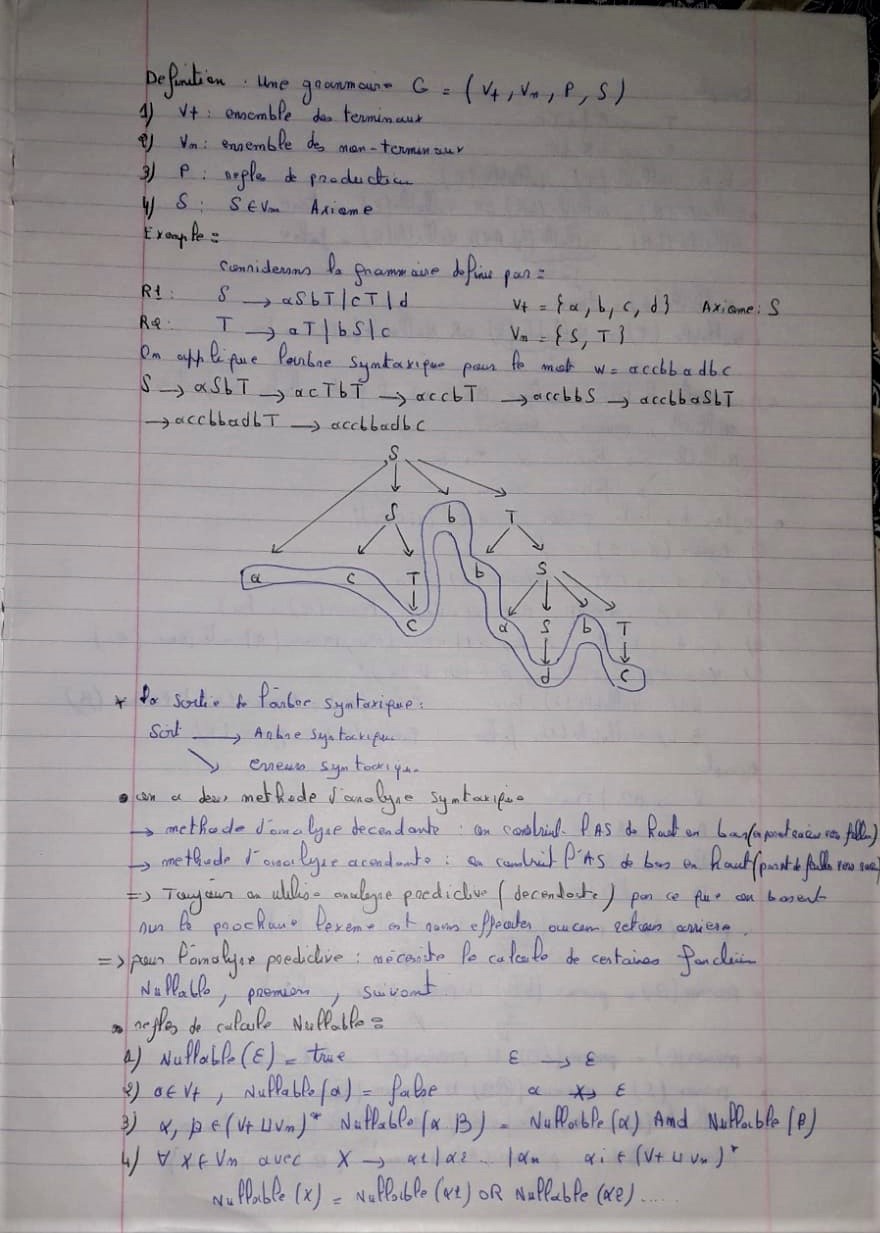 Definition : Une grammaire G = (Vt, Vn, P, S)
1) Vt : ensemble des terminaux
2) Vn : ensemble des non-terminaux
3) P : regles de production
4) S : S ∈ Vn Axiome
Exemple :
considerons la grammaire definie par :
R1 : S → aSbT | cT | d Vt = {a, b, c, d} Axiome : S
R2 : T → aT | bS | c Vn = {S, T}
On applique l'arbre syntaxique pour le mot w = accbbadbc
S → aSbT → acTbT → accbT → accbbS → accbbaSbT
→ accbbadbT → accbbadbc
S
S b T
a c T b S
c a S b T
d c
* la sortie de l'arbre syntaxique :
Sort → Arbre syntaxique
↘ erreurs syntaxique
• on a deux methode d'analyse syntaxique
→ methode d'analyse decendante : on construit l'AS de haut en bas
→ methode d'analyse acendante : on construit l'AS de bas en haut
=> Toujour on utilise analyse predictive (decendante) par ce que on basent
sur le prochaine lexeme et sans effectuer aucun retour arriere.
=> pour l'analyse predictive : nécessite le calcule de certaines fonction
Nullable, premier, suivant
• regles de calcule Nullable :
1) Nullable(ε) = true ε → ε
2) a ∈ Vt, Nullable(a) = false a ↛ ε
3) α, β ∈ (Vt ∪ Vn)* Nullable(α β) = Nullable(α) And Nullable(β)
4) ∀ X ∈ Vn avec X → α1 | α2 ... | αn αi ∈ (Vt ∪ Vn)*
Nullable(X) = Nullable(α1) OR Nullable(α2) ....